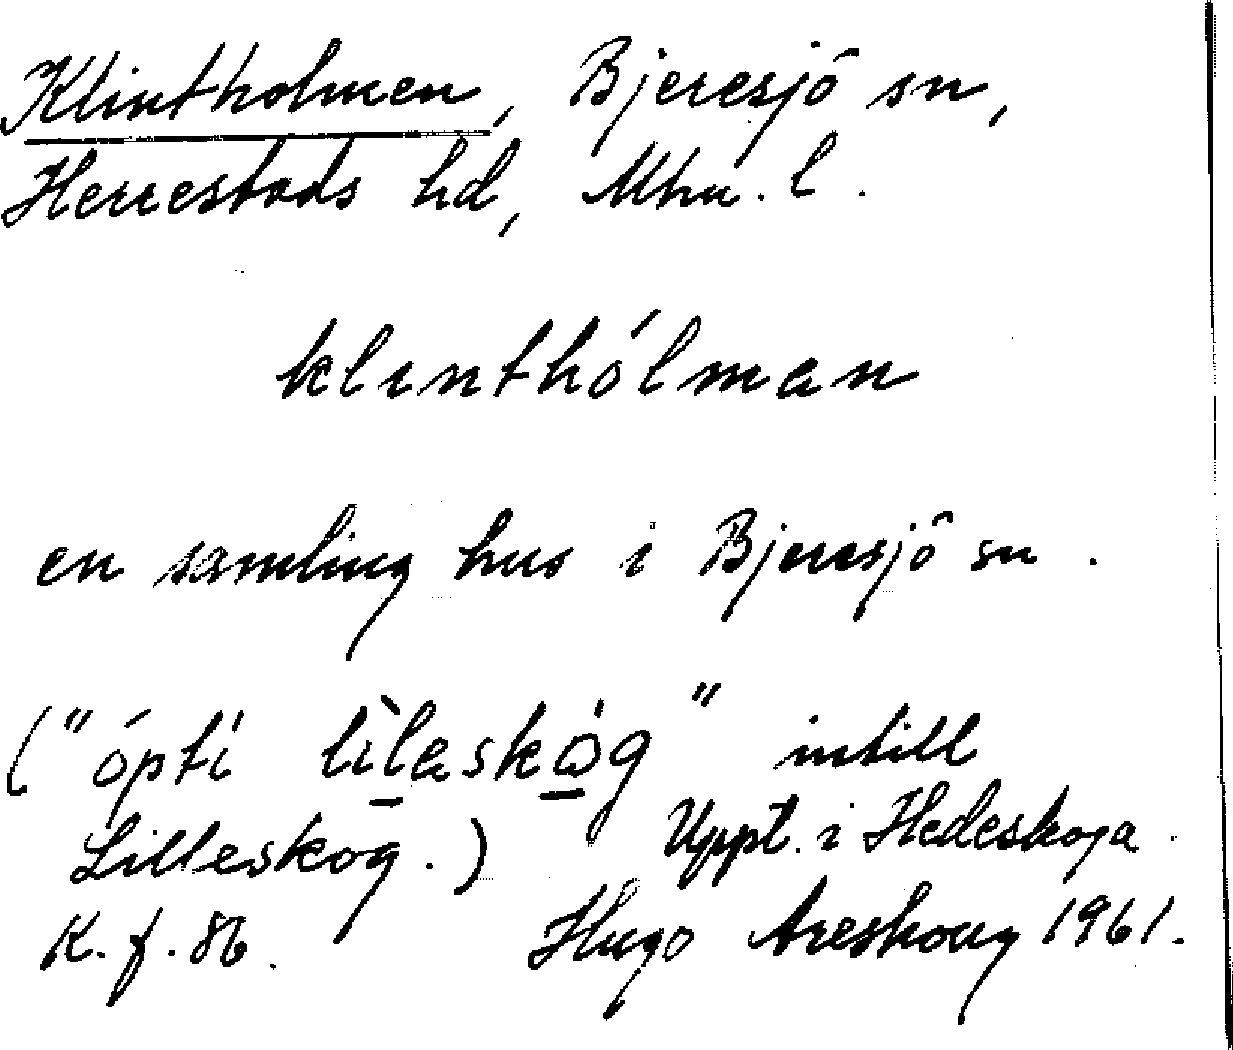 Klintholmen, Bjeresjö sn,
Herrestads hd, Mhu. l.
klınthólman
en samling hus i Bjeresjö sn.
("ópti lìlaskòg" intill
Lilleskog.) Uppt. i Hedeskoga
K. f. 86. Hugo Areskoug 1961.